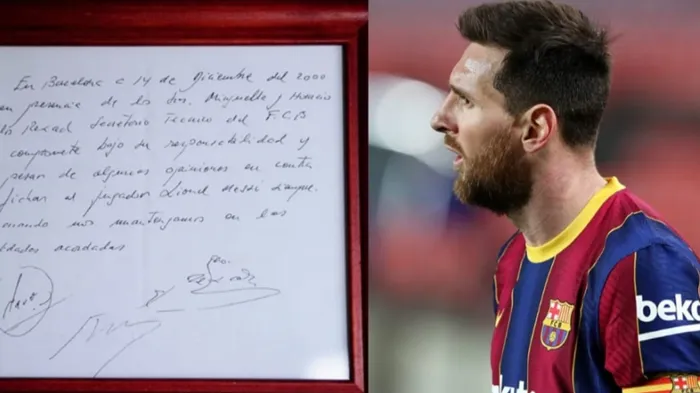 En Barcelona a 14 de Diciembre del 2000
en presencia de los Srs. Minguella y Horacio
Rexach Secretario Tecnico del F.C.B
compromete bajo su responsabilidad y
pesar de algunas opiniones en contra
fichar al jugador Lionel Messi siempre
cuando nos mantengamos en las
tidades acordadas
FCB
beko